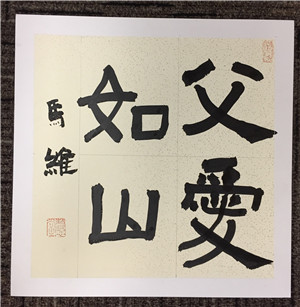 父愛
如山
馬維